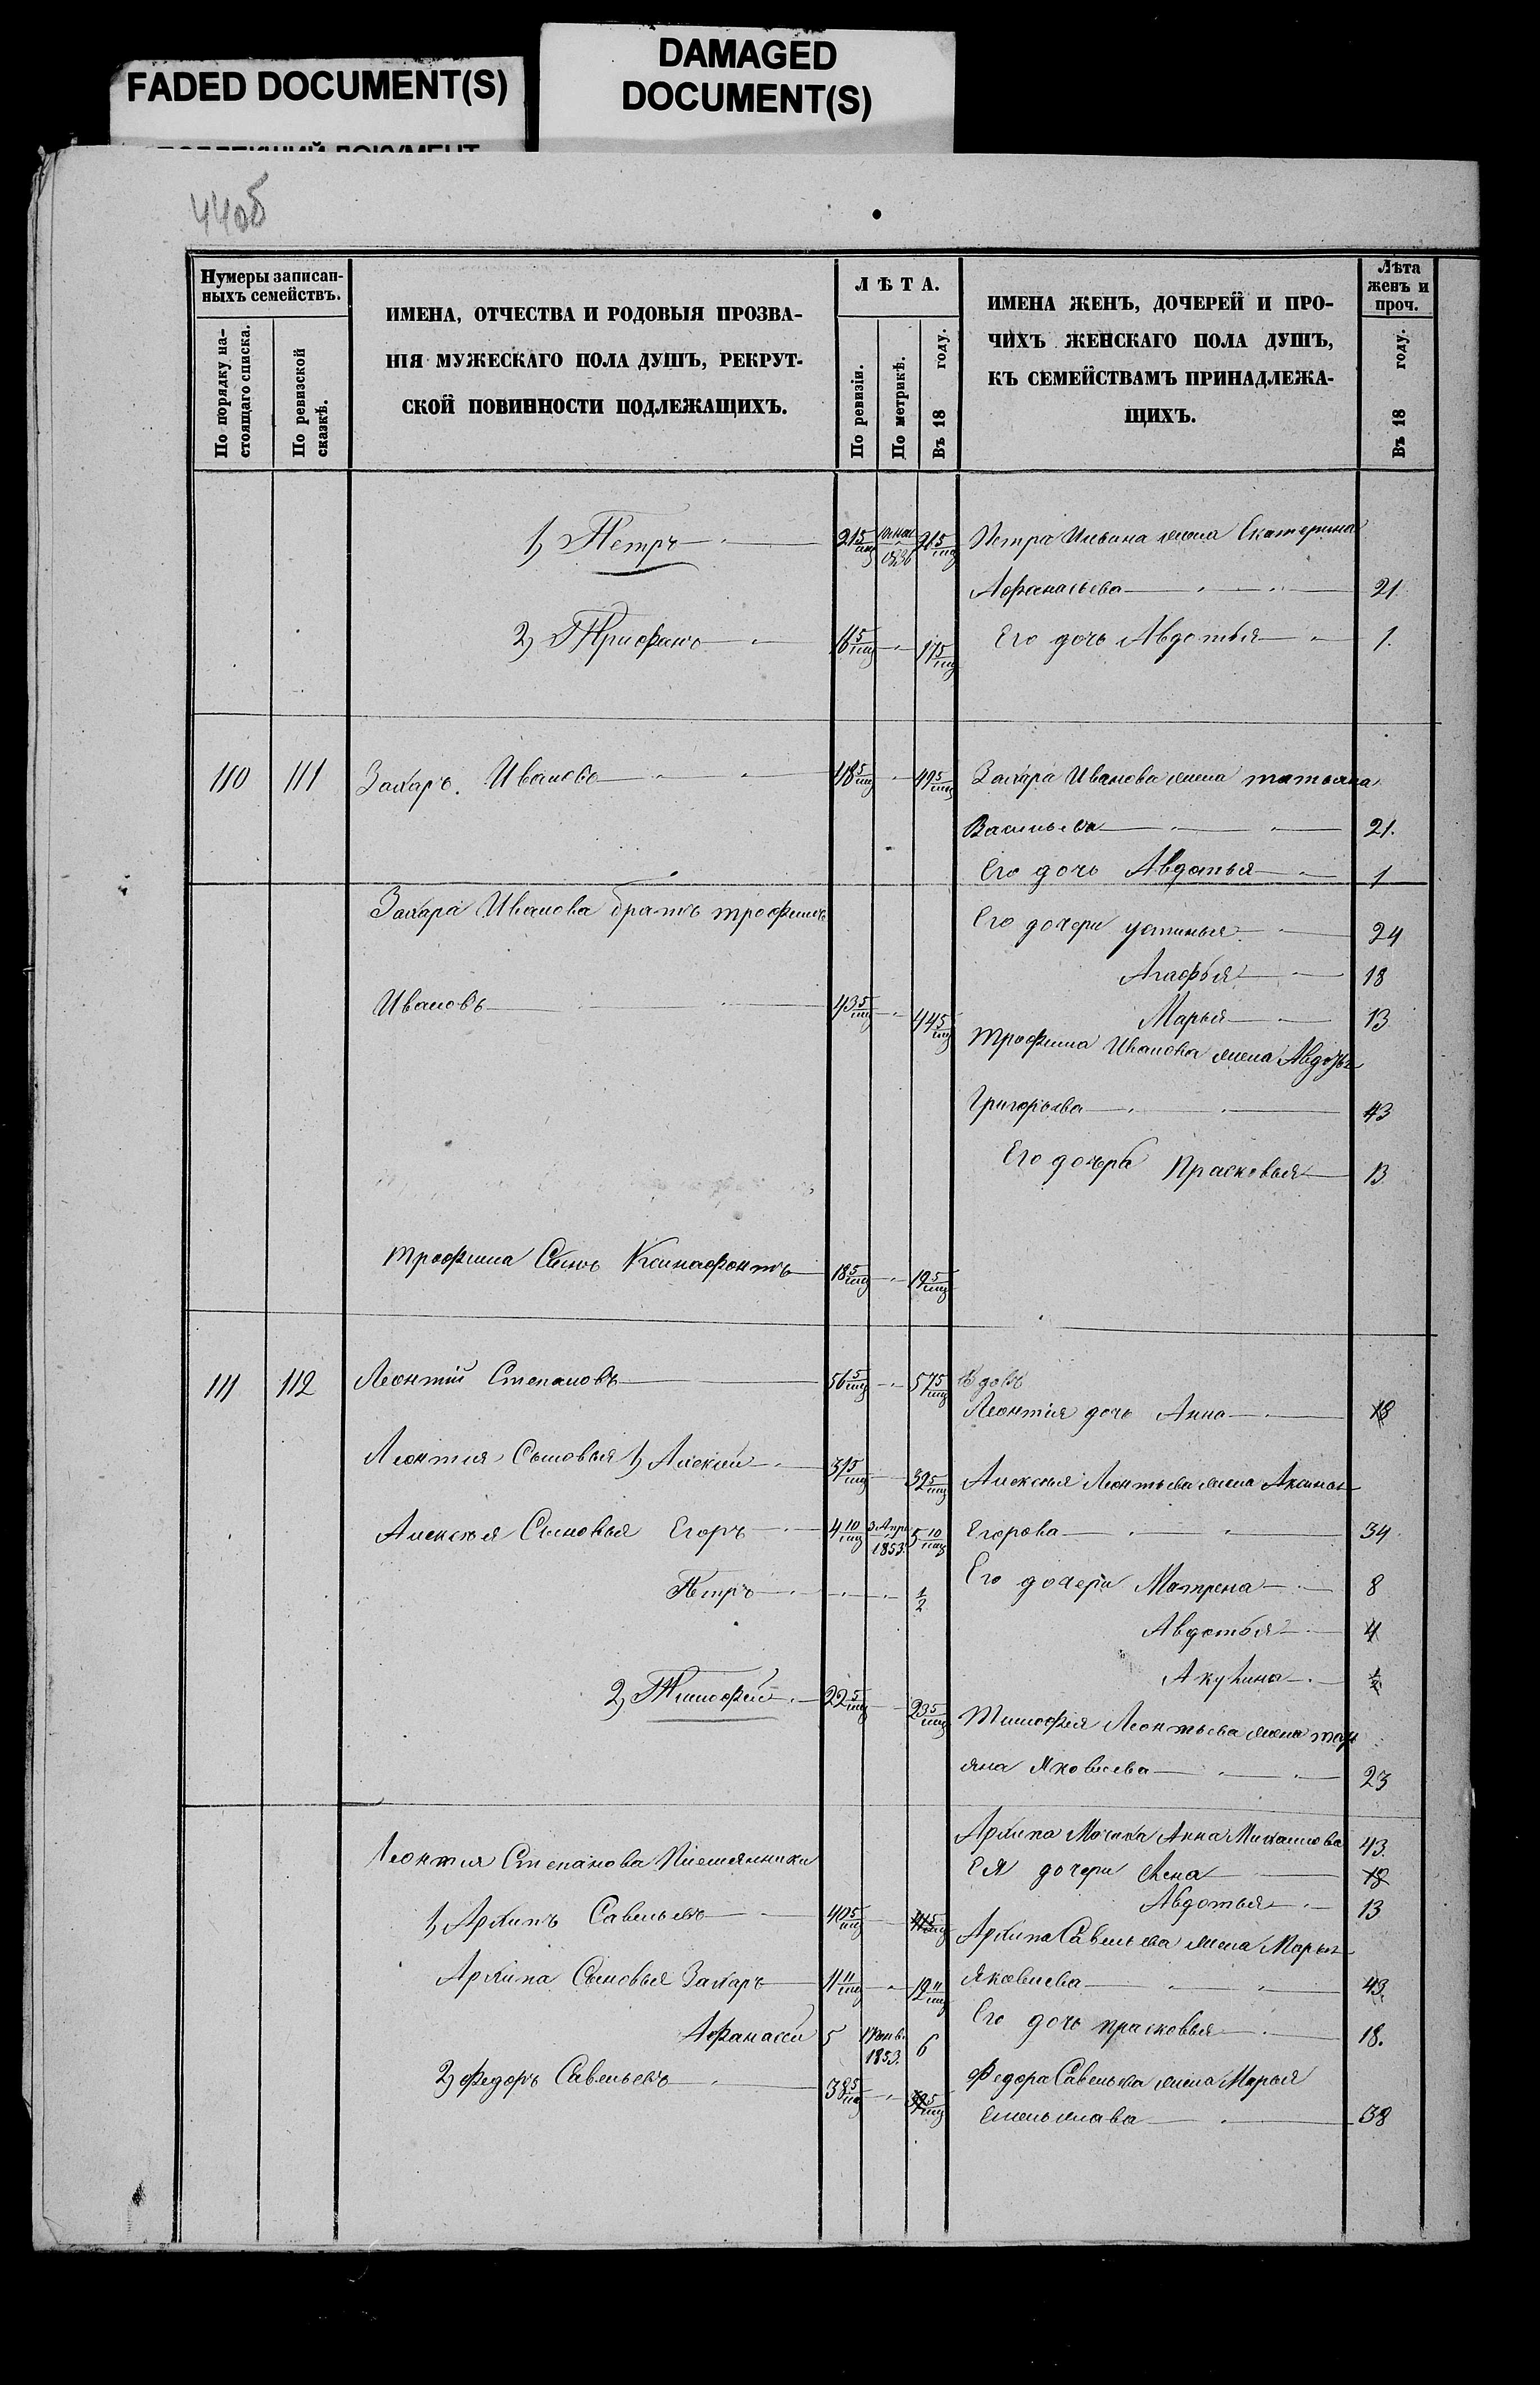 FADED DOCUMENT(S)
DAMAGED
DOCUMENT(S)
44об
Нумеры записан-
ныхъ семействъ.
По порядку на-
стоящаго списка.
По ревизской
сказкѣ.
ИМЕНА, ОТЧЕСТВА И РОДОВЫЯ ПРОЗВА-
НІЯ МУЖЕСКАГО ПОЛА ДУШЪ, РЕКРУТ-
СКОЙ ПОВИННОСТИ ПОДЛЕЖАЩИХЪ.
ЛѢТА.
По ревизіи.
По метрикѣ.
Въ 18 году.
ИМЕНА ЖЕНЪ, ДОЧЕРЕЙ И ПРО-
ЧИХЪ ЖЕНСКАГО ПОЛА ДУШЪ,
КЪ СЕМЕЙСТВАМЪ ПРИНАДЛЕЖА-
ЩИХЪ.
Лѣта
женъ и
проч.
Въ 18 году.
1) Петръ 21 5/мц 1836 21 5/мц Петра Ильина жена Екатерина
Афанасьева 21.
2) Трифанъ 16 5/мц 17 5/мц Его дочь Авдотья 1.
110 111 Захаръ Ивановъ 48 5/мц 49 5/мц Захара Иванова жена татьяна
Васильева 21.
Его дочь Авдотья 1
Захара Иванова братъ трофимъ
Его дочери устинья 24
Агафья 18
Ивановъ 43 5/мц 44 5/мц Марья 13
трофима Иванова жена Авдоть
Григорьева 43
Его дочь Прасковья 13
трофима Сынъ Ксинафонтъ 18 5/мц 19 5/мц
111 112 Леонтій Степановъ 56 5/мц 57 5/мц вдовъ
Леонтія дочь Анна 18
Леонтия Сыновья 1) Алексей 31 5/мц 32 5/мц Алексея Леонтьева жена Аксинья
Алексея Сыновья Егоръ 4 10/мц 3 Апр. 1853. 5 10/мц Егорова 34
Петръ 1/2 Его дочери Матрена 8
Авдотья 4
Акулина 1/2
2) Тимофей 22 5/мц 23 5/мц Тимофея Леонтьева жена тат
яна Яковлева 23
Архипа Мачиха Анна Михаилова 43.
Леонтия Степанова Племянники
Ея дочери Анна 18
Авдотья 13
1) Архипъ Савельевъ 40 5/мц 41 5/мц Архипа Савельева жена Марья
Архипа Сыновья Захаръ 11 11/мц 12 11/мц Яковлева 43.
Афанасей 5 1853. 6 Его дочь прасковья 18.
2) Федоръ Савельевъ 38 5/мц 39 5/мц Федора Савельева жена Марья
Емельянава 38